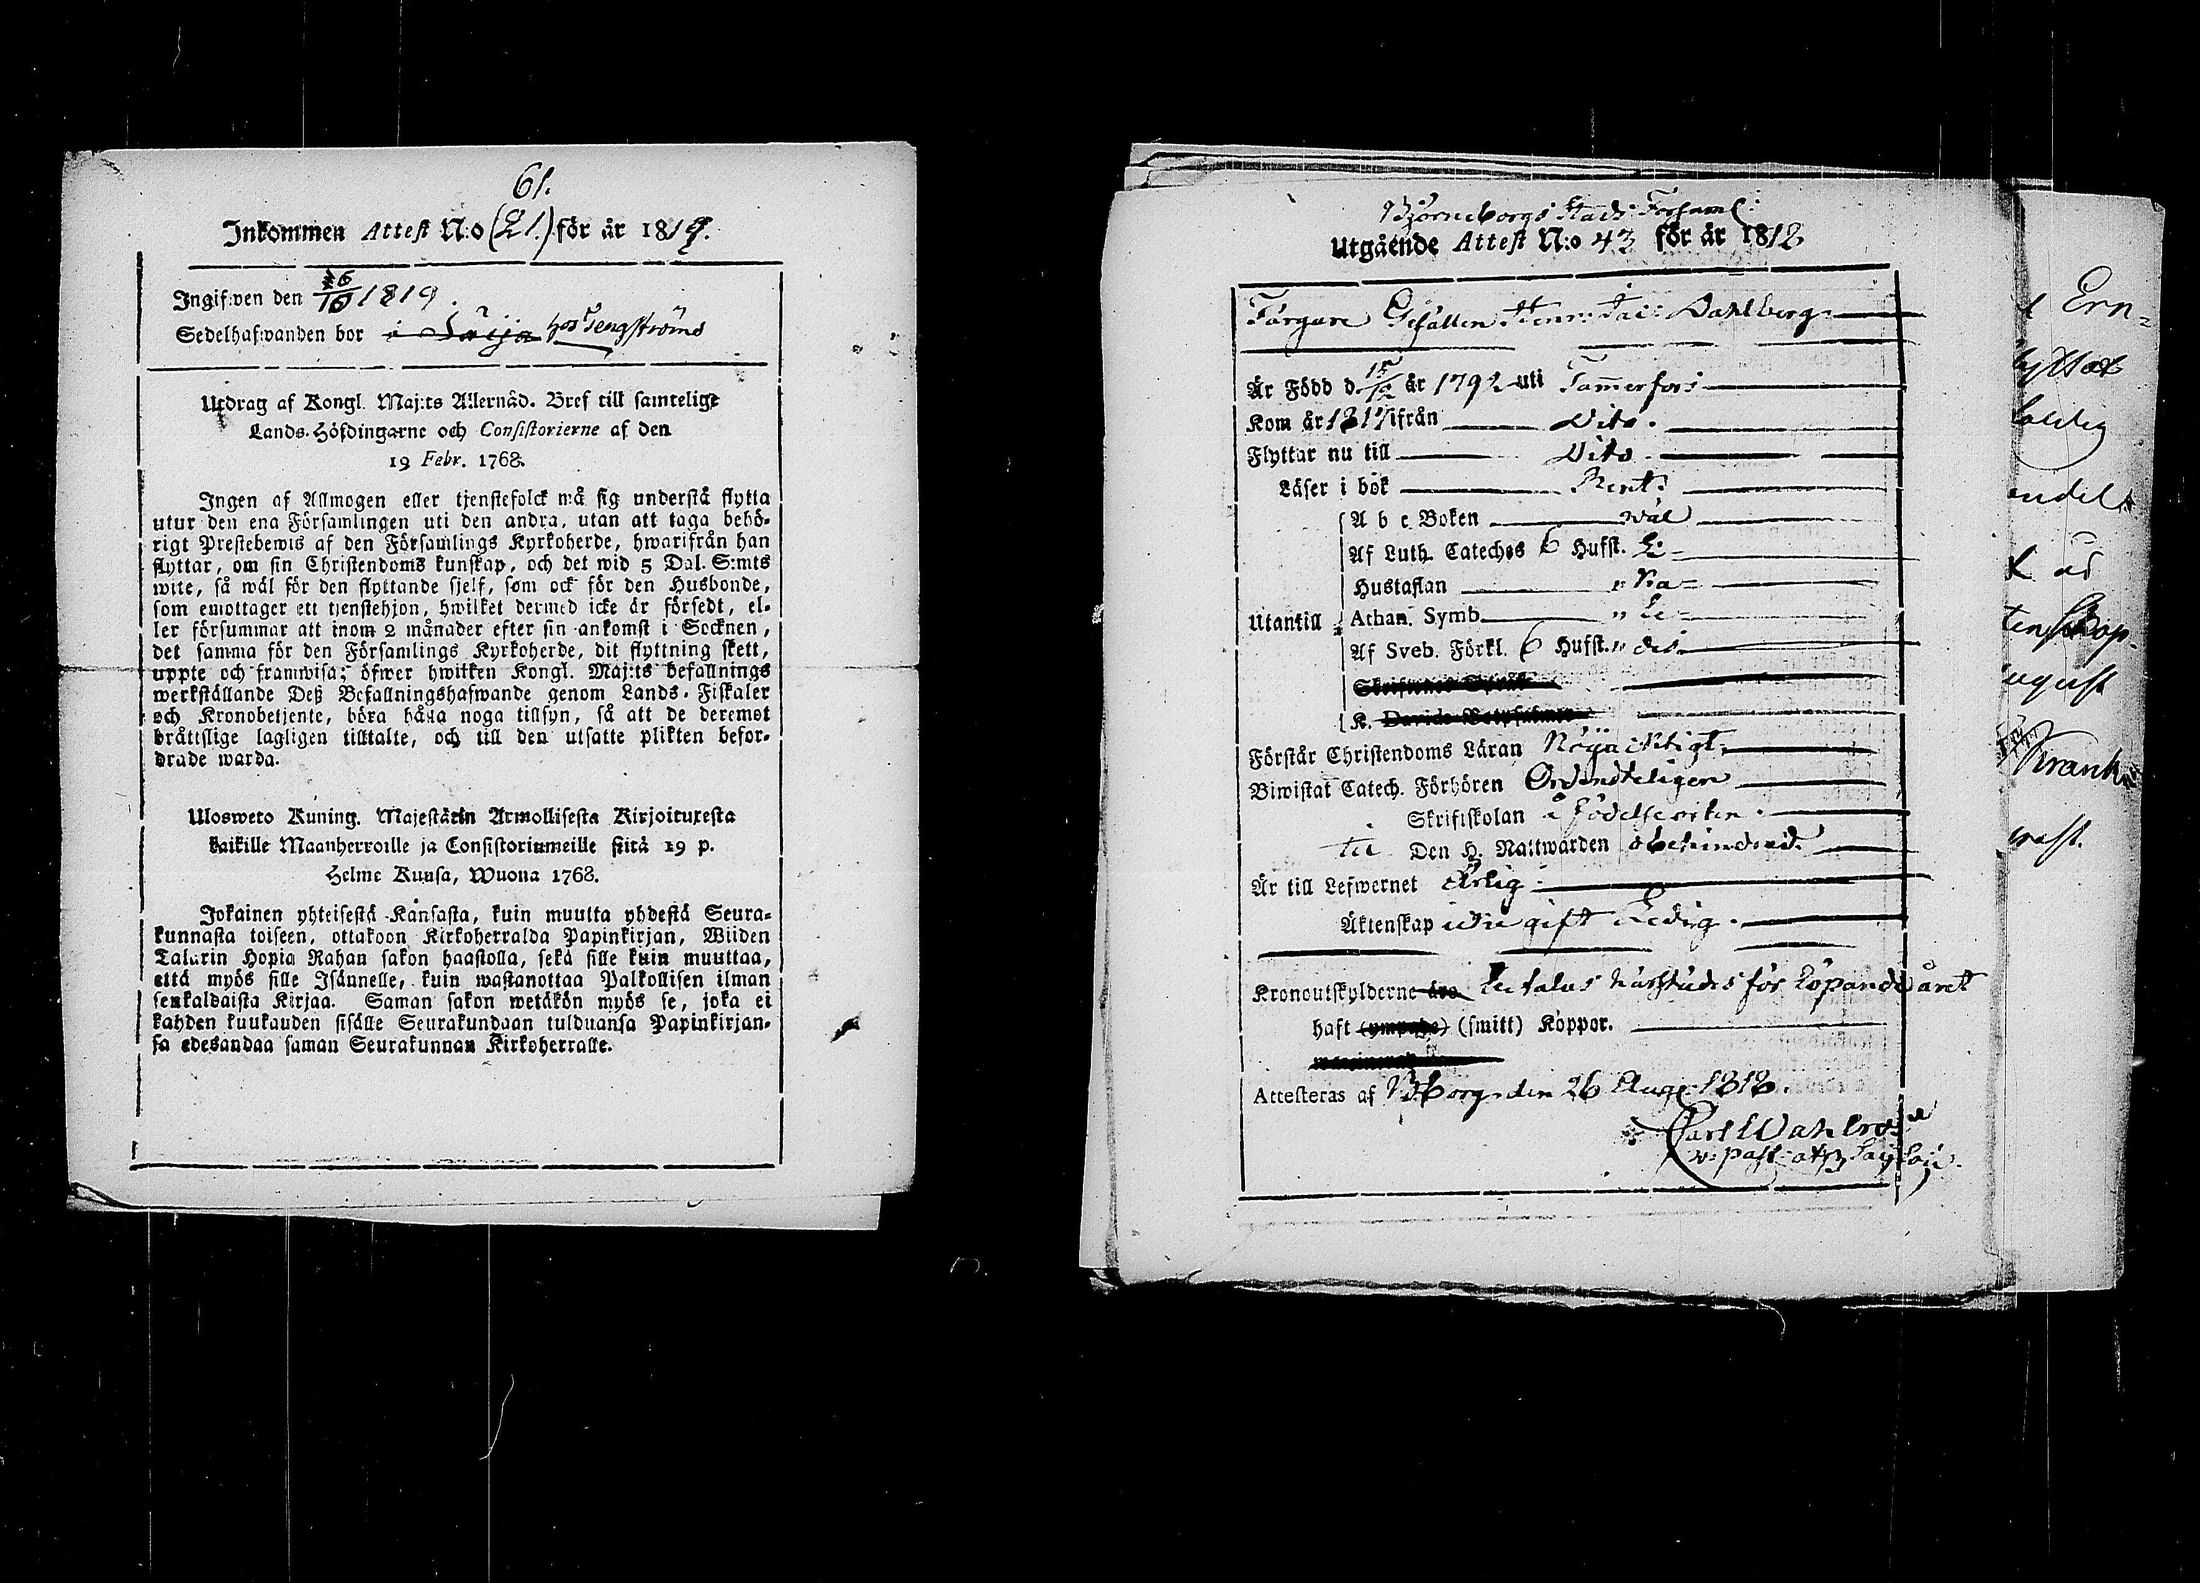 61.
Inkommen Attest N:o (21.) för år 1819.
Ingifwen den 26/10 1819.
Sedelhafwanden bor i hos Tengströms
Utdrag af Kongl. Maj:ts Allernåd. Bref till samtelige
Lands-Höfdingarne och Consistorierne af den
19 Febr. 1768.
Ingen af Allmogen eller tjenstefolck må sig understå flytta
utur den ena Församlingen uti den andra, utan att taga behö-
rigt Prestebewis af den Församlings Kyrkoherde, hwarifrån han
flyttar, om sin Christendoms kunskap, och det wid 5 Dal. S:mts
wite, så wäl för den flyttande sjelf, som ock för den Husbonde,
som emottager ett tjenstehjon, hwilket dermed icke är försedt, el-
ler försummar att inom 2 månader efter sin ankomst i Socknen,
det samma för den Församlings Kyrkoherde, dit flyttning skett,
uppte och framwisa; öfwer hwilken Kongl. Maj:ts befallnings
werkställande Deß Befallningshafwande genom Lands-Fiskaler
och Kronobetjente, böra hålla noga tillsyn, så att de deremot
bråttslige lagligen tilltalte, och till den utsatte plikten befor-
drade warda.
Ulosweto Kuning. Majestätin Armollisesta Kirjoituxesta
kaikille Maanherroille ja Consistoriumeille siitä 19 p.
Helme Kuusa, Wuona 1768.
Jokainen yhteisestä Kansasta, kuin muutta yhdestä Seura-
kunnasta toiseen, ottakoon Kirkoherralda Papinkirjan, Wiiden
Talarin Hopia Rahan sakon haastolla, sekä sille kuin muuttaa,
että myös sille Isännelle, kuin wastanottaa Palkollisen ilman
senkaldaista Kirjaa. Saman sakon wetäkön myös se, joka ei
kahden kuukauden sisälle Seurakundaan tulduansa Papinkirjan-
sa edesandaa saman Seurakunnan Kirkoherralle.
Björneborgs Stads Församl:
Utgående Attest N:o 43 för år 1818
Färgare Gesällen Henr: Jac: Dahlberg
Är Född d. 15/2 år 1792 uti Tammerfors
Kom år 1817 ifrån Dito.
Flyttar nu till Dito.
Läser i bok Rent.
A b c Boken wäl
Af Luth. Cateches 6 Hufst. L:
Hustaflan
Athan. Symb.
Utantill
Af Sveb. Förkl. 6 Hufst. " des
K.
Förstår Christendoms Läran Nöjacktigt.
Biwistat Catech. Förhören Ordenteligen
Skriftskolan å födelseorten.
till Den H. Nattwarden obehindrad.
Är till Lefwernet Ärlig.
Äktenskap icke gift Ledig.
Kronoutskylderne betalas härstädes för löpande året
haft (ympade) (smitt) Koppor.
Attesteras af BBorg den 26 Aug: 1818.
Carl Wahlroos
v: past:
Ern-
ugust